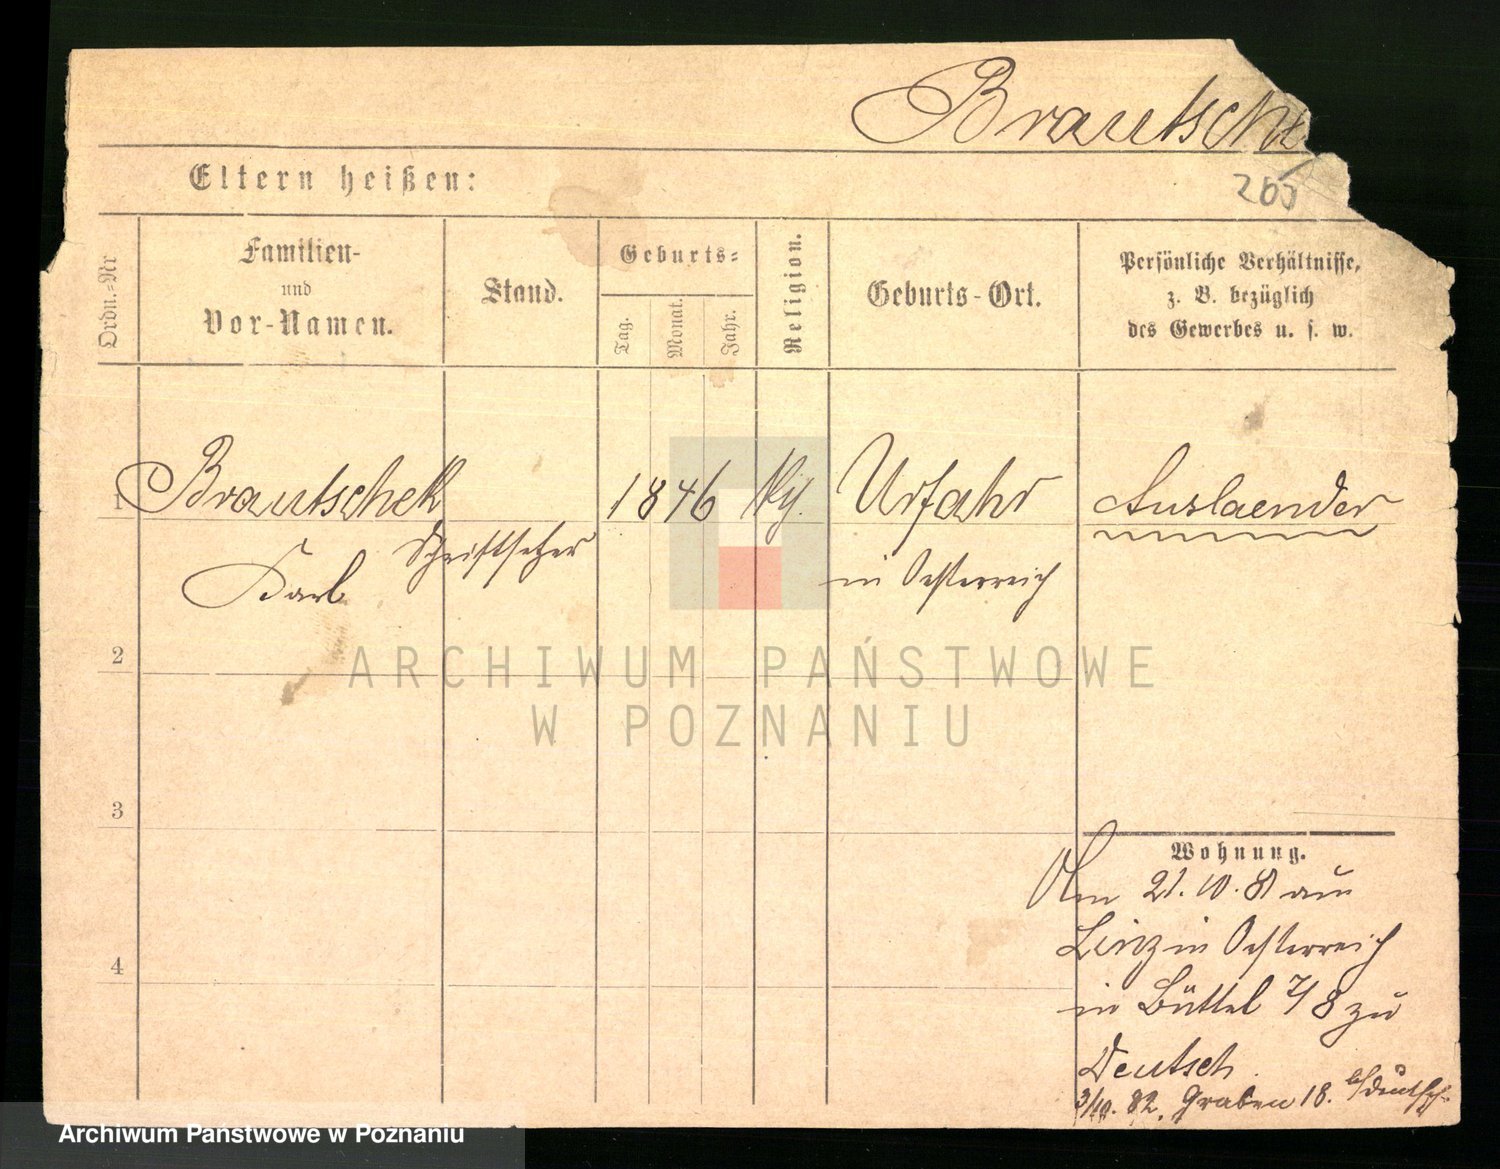 Brautsche
205
Eltern heißen:
Ordn.-Nr
Familien-
und
Vor-Namen.
Stand.
Geburts-
Tag.
Monat.
Jahr.
Religion.
Geburts-Ort.
Persönliche Verhältnisse,
z. B. bezüglich
des Gewerbes u. s. w.
1
Brautschek
Karl
Schriftsetzer
1846
Urfahr
in Oesterreich
Auslaender
2
3
4
Wohnung.
Am 21.10.81 aus
Linz in Oesterreich
in Büttel 7/8 zu
Deutsch.
3/10. 82. Graben 18. b/Deutsch.
ARCHIWUM PAŃSTWOWE
W POZNANIU
Archiwum Państwowe w Poznaniu